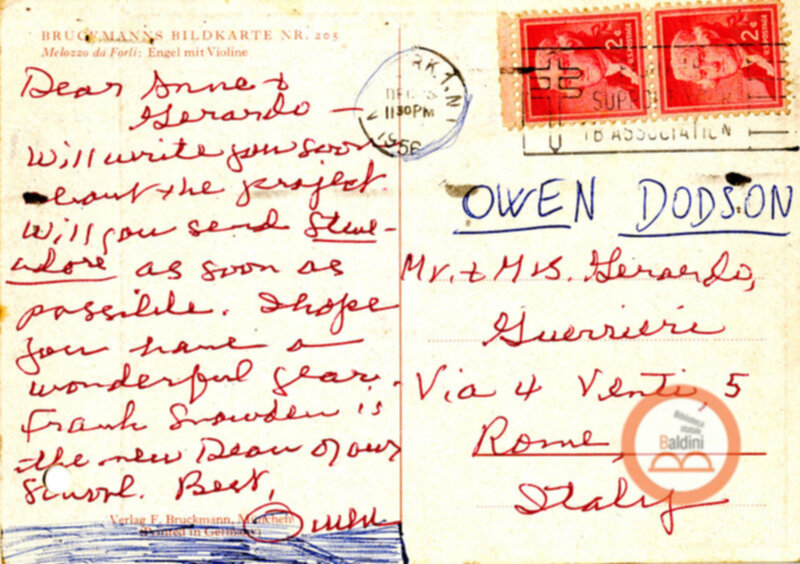 BRUCKMANNS BILDKARTE NR. 205
Melozzo da Forli: Engel mit Violine
Dear Anne &
Gerardo —
Will write you soon
about the project.
Will you send Steve-
adore as soon as
possible. I hope
you have a
wonderful year.
Frank Snowden is
the new Dean of our
School. Best,
Owen
Verlag F. Bruckmann, München
(Printed in Germany)
RK 1, N.Y.
DEC
11 30 PM
1956
2¢
U.S. POSTAGE
2¢
U.S. POSTAGE
TB ASSOCIATION
OWEN DODSON
Mr. & Mrs. Gerardo,
Guerrieri
Via 4 Venti, 5
Rome,
Italy
Biblioteca
statale
Baldini